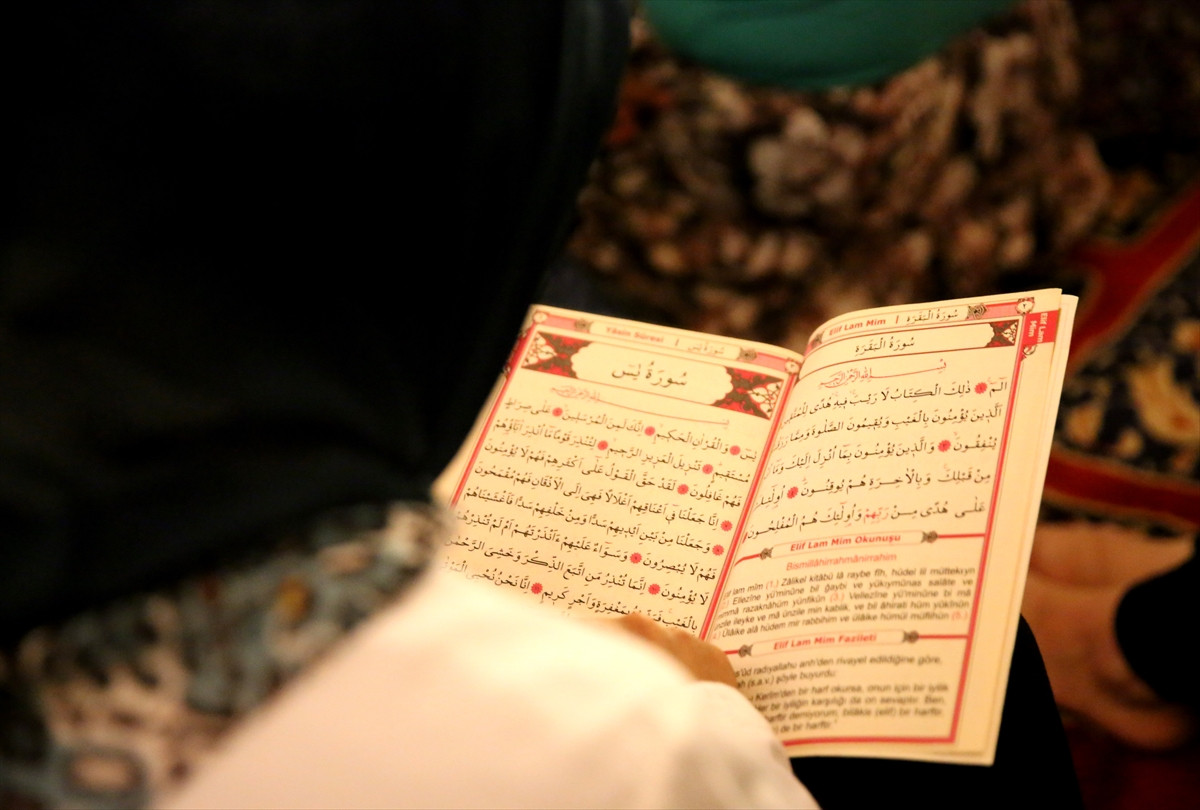 Yâsîn Sûresi | سُورَةُ يٰسٓ
سُورَةُ يٰسٓ
يٰسٓ ۝ وَالْقُرْاٰنِ الْحَكِيمِ ۝ اِنَّكَ لَمِنَ الْمُرْسَلِينَ ۝ عَلٰى صِرَاطٍ
مُسْتَقِيمٍ ۝ تَنْزِيلَ الْعَزِيزِ الرَّحِيمِ ۝ لِتُنْذِرَ قَوْمًا مَٓا اُنْذِرَ اٰبَٓاؤُهُمْ
فَهُمْ غَافِلُونَ ۝ لَقَدْ حَقَّ الْقَوْلُ عَلٰٓى اَكْثَرِهِمْ فَهُمْ لَا يُؤْمِنُونَ
۝ اِنَّا جَعَلْنَا فِٓي اَعْنَاقِهِمْ اَغْلَالًا فَهِيَ اِلَى الْاَذْقَانِ فَهُمْ مُقْمَحُونَ
۝ وَجَعَلْنَا مِنْ بَيْنِ اَيْدِيهِمْ سَدًّا وَمِنْ خَلْفِهِمْ سَدًّا فَاَغْشَيْنَاهُمْ
فَهُمْ لَا يُبْصِرُونَ ۝ وَسَوَٓاءٌ عَلَيْهِمْ ءَاَنْذَرْتَهُمْ اَمْ لَمْ تُنْذِرْهُمْ
لَا يُؤْمِنُونَ ۝ اِنَّمَا تُنْذِرُ مَنِ اتَّبَعَ الذِّكْرَ وَخَشِيَ الرَّحْمٰنَ
بِالْغَيْبِ فَبَشِّرْهُ بِمَغْفِرَةٍ وَاَجْرٍ كَرِيمٍ ۝ اِنَّا نَحْنُ نُحْيِ
Elif Lam Mim | سُورَةُ الْبَقَرَةِ
٢
Elif Lam Mim
سُورَةُ الْبَقَرَةِ
الٓمٓ ۝ ذٰلِكَ الْكِتَابُ لَا رَيْبَ فِيهِ هُدًى
اَلَّذِينَ يُؤْمِنُونَ بِالْغَيْبِ وَيُقِيمُونَ الصَّلٰوةَ وَمِمَّا
يُنْفِقُونَ ۝ وَالَّذِينَ يُؤْمِنُونَ بِمَٓا اُنْزِلَ اِلَيْكَ وَمَٓا
مِنْ قَبْلِكَ وَبِالْاٰخِرَةِ هُمْ يُوقِنُونَ ۝ اُولٰٓئِكَ
عَلٰى هُدًى مِنْ رَبِّهِمْ وَاُولٰٓئِكَ هُمُ الْمُفْلِحُونَ
Elif Lam Mim Okunuşu
Bismillâhirrahmânirrahim
lam mîm (1.) Zâlikel kitâbü lâ raybe fîh, hüdel lil müttekıyn
Ellezîne yü'minûne bil ğaybi ve yükıymûnas salâte ve
mimmâ razaknâhüm yünfikûn (3.) Vellezîne yü'minûne bi mâ
ünzile ileyke ve mâ ünzile min kablik, ve bil âhirati hüm yûkinûn
Ülâike alâ hüdem mir rabbihim ve ülâike hümül müflihûn (5.)
Elif Lam Mim Fazileti
radıyallahu anh'den rivayet edildiğine göre,
(s.a.v.) şöyle buyurdu:
Kerîm'den bir harf okursa, onun için bir iyilik
bir iyiliğin karşılığı da on sevaptır. Ben,
harftir demiyorum, bilâkis (elif) bir harftir
de bir harftir."